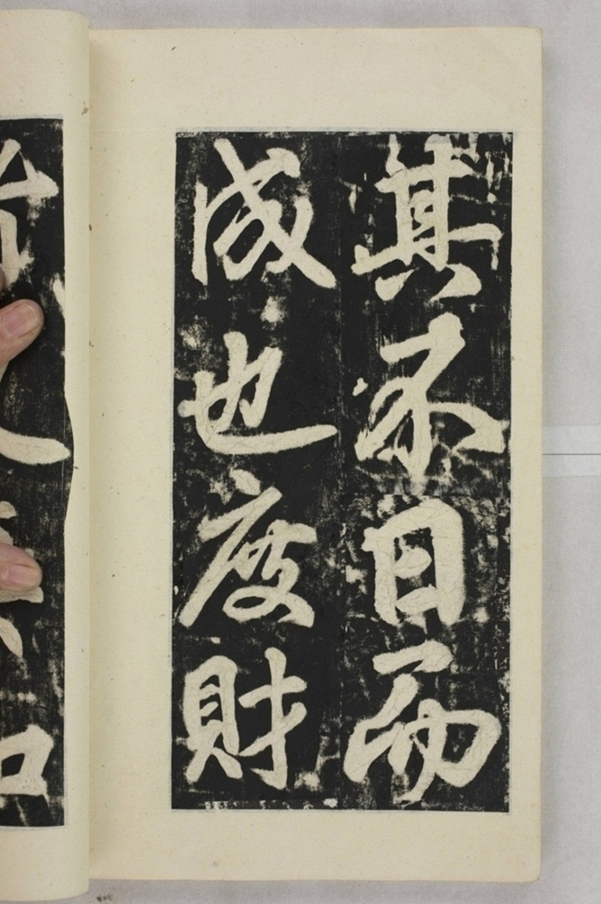 其不日而
成也度財